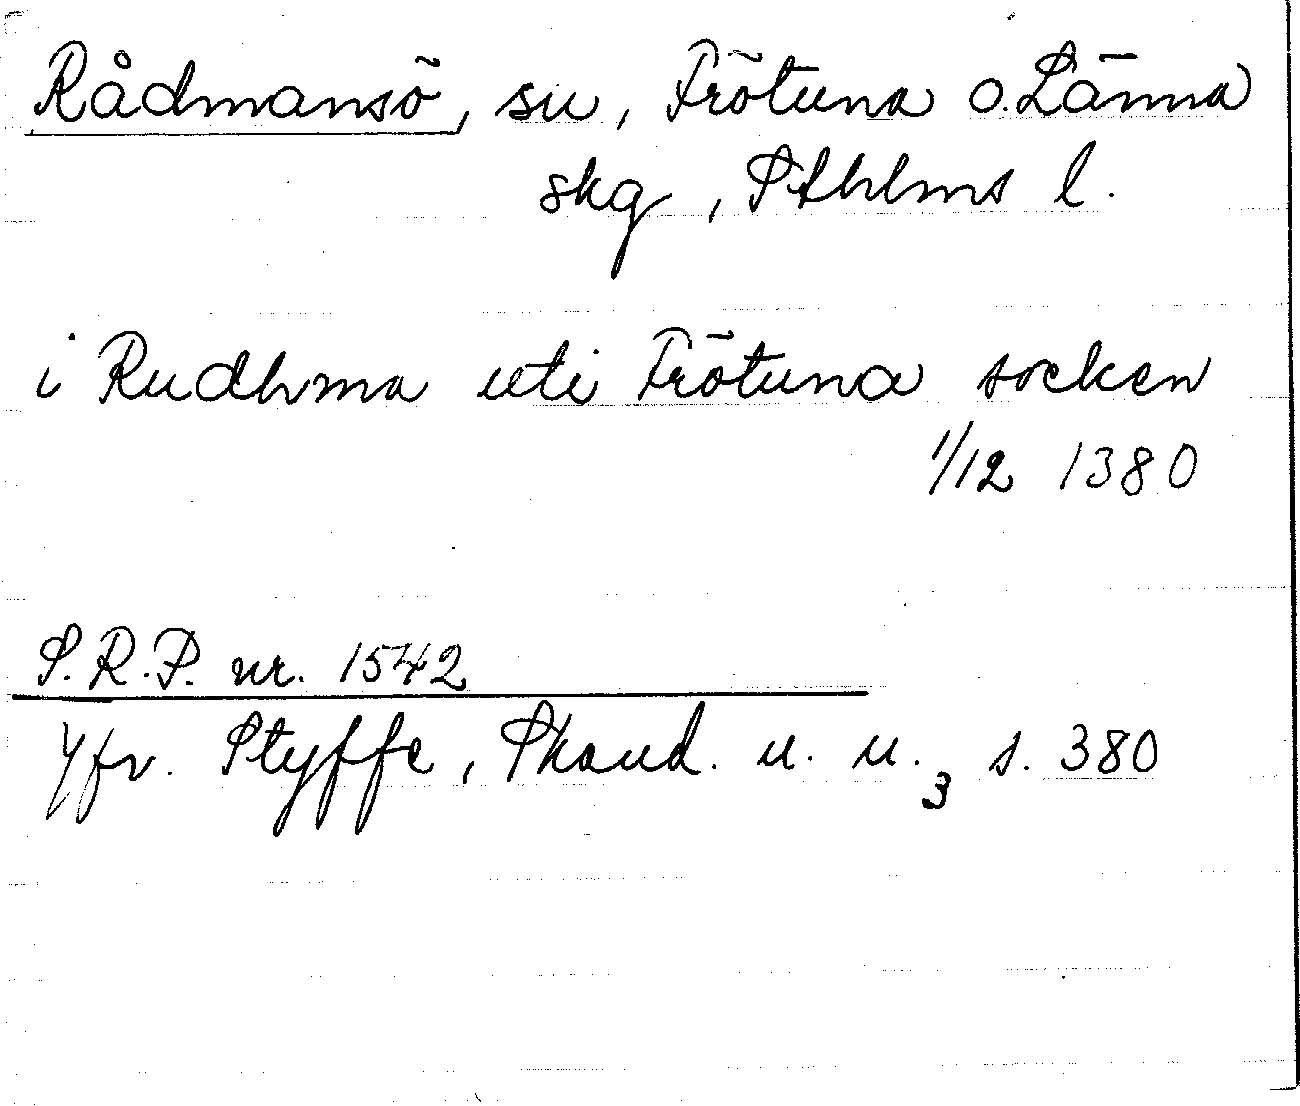 Rådmansö, sn, Frötuna o. Länna
skg, Sthlms l.
i Rudhma uti Frötuna socken
1/12 1380
S.R.P. nr. 1542
Jfr. Styffe, Skand. u. u.3 s. 380